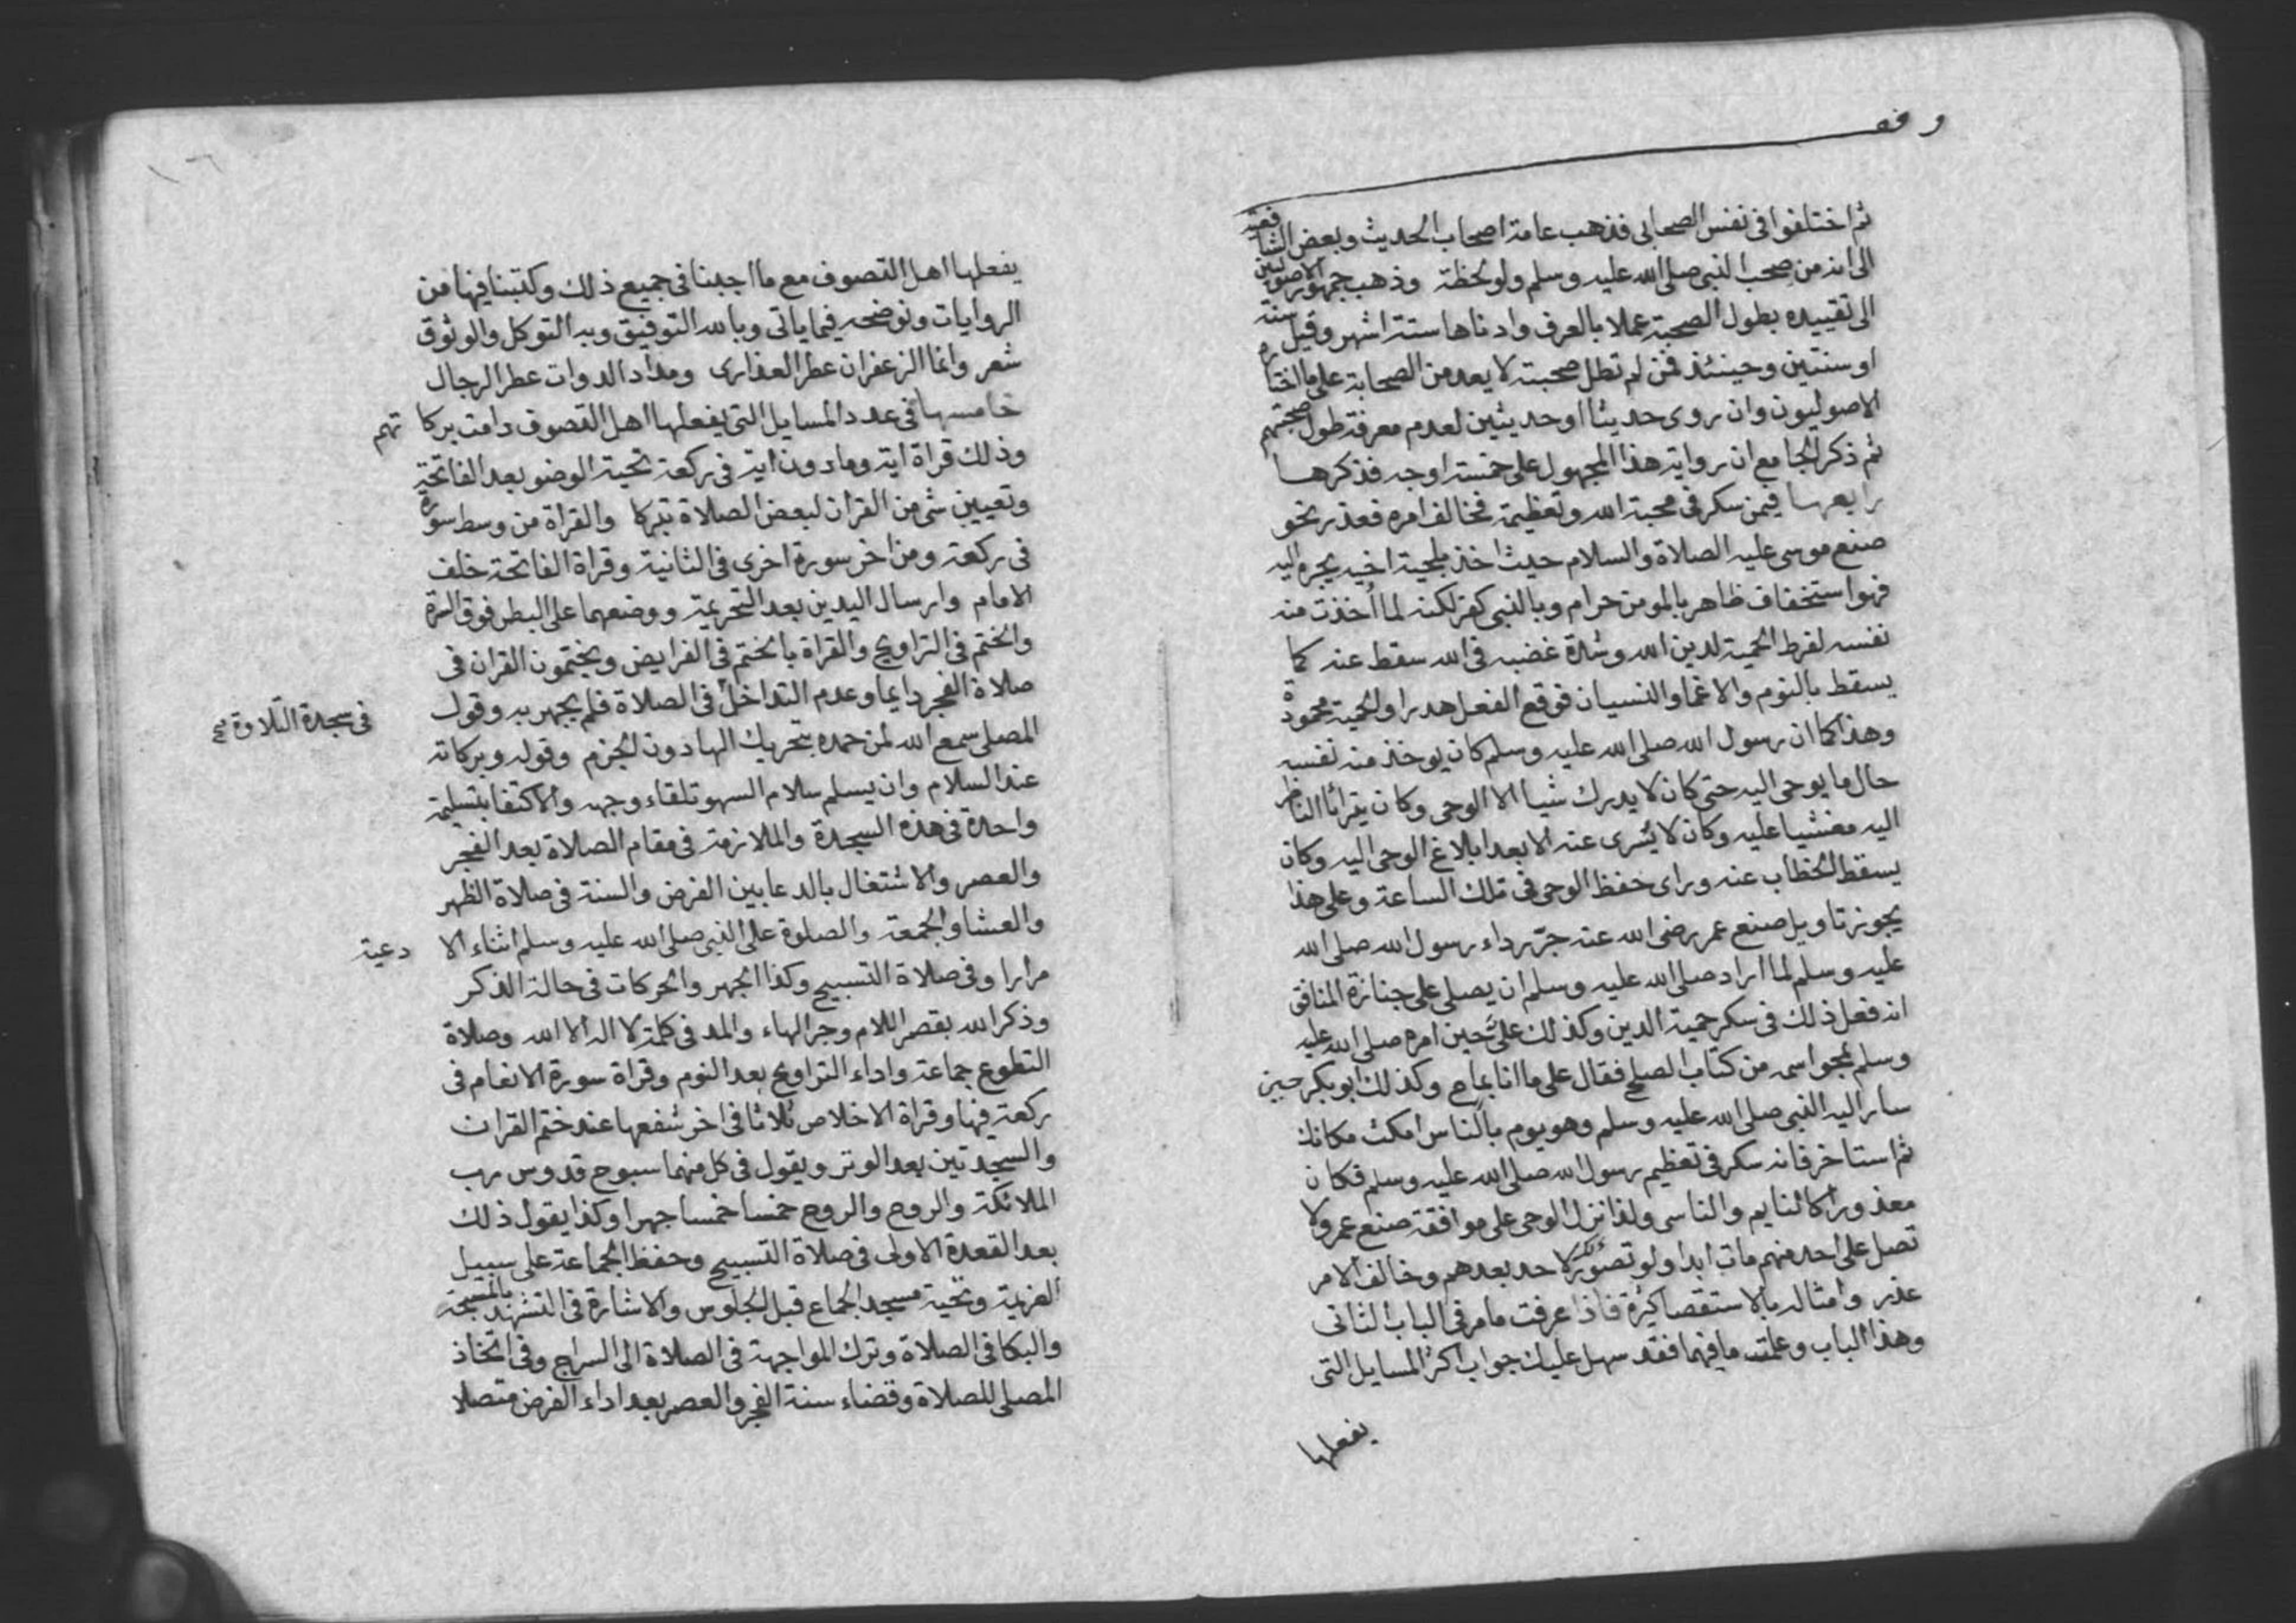 وقف
ثم اختلفوا فى نفس الصحابى فذهب عامة اصحاب الحديث وبعض الشافعية
الى انه من صحب النبى صلى الله عليه وسلم ولو لحظة وذهب جمهور الاصوليين
الى تقييده بطول الصحبة عملا بالعرف وادناها ستة اشهر وقيل سنة
او سنتين وحينئذ فمن لم تطل صحبته لا يعد من الصحابة على ما اختاره
الاصوليون وان روى حديثا او حديثين لعدم معرفة طول صحبتهم
ثم ذكر الجامع ان رواية هذا المجهول على خمسة اوجه فذكرها
رابعها فيمن سكر فى محبة الله وتعظيمه فخالف امره فعذر نحو
صنع موسى عليه الصلاة والسلام حيث اخذ بلحية اخيه يجره اليه
فهو استخفاف ظاهر بالمومن حرام وبالنبى كفر لكنه لما أخذت منه
نفسه لفرط الحمية لدين الله وشدة غضبه فى الله سقط عنه كما
يسقط بالنوم والاغما والنسيان فوقع الفعل هدرا والحمية محمودة
وهذا كما ان رسول الله صلى الله عليه وسلم كان يوخذ منه نفسه
حال ما يوحى اليه حتى كان لا يدرك شيا الا الوحى وكان يتراأا الناظر
اليه مغشيا عليه وكان لا يسرى عنه الا بعد ابلاغ الوحى اليه وكان
يسقط الخطاب عنه وراى حفظ الوحى فى تلك الساعة وعلى هذا
يجوز تاويل صنع عمر رضى الله عنه جرّ رداء رسول الله صلى الله
عليه وسلم لما اراد صلى الله عليه وسلم ان يصلى على جنازة المنافق
انه فعل ذلك فى سكر حمية الدين وكذلك على حين امره صلى الله عليه
وسلم بمحو اسمه من كتاب الصلح فقال على ما انا بماح وكذلك ابو بكر حين
سار اليه النبى صلى الله عليه وسلم وهو يوم بالناس امكث مكانك
ثم استاخر فانه سكر فى تعظيم رسول الله صلى الله عليه وسلم فكان
معذورا كالنايم والناسى ولذا نزل الوحى على موافقة صنع عمر ولا
تصل على احد منهم مات ابدا ولو تصور لاحد بعدهم وخالف الامر
عذر وامثاله بالاستقصا كثيرة فاذا عرفت ما مر فى الباب الثانى
وهذا الباب وعلمت ما فيهما فقد سهل عليك جواب اكثر المسايل التى
يفعلها
يفعلها اهل التصوف مع ما اجبنا فى جميع ذلك وكتبنا فيها من
الروايات ونوضحه فيما ياتى وبالله التوفيق وبه التوكل والوثوق
شعر وانما الزعفران عطر العذارى ومداد الدوات عطر الرجال
خامسها فى عدد المسايل التى يفعلها اهل التصوف دامت بركاتهم
وذلك قراة اية وما دون اية فى ركعة تحية الوضو بعد الفاتحة
وتعيين شى من القران لبعض الصلاة تبركا والقراة من وسط سورة
فى ركعة ومن اخر سورة اخرى فى الثانية وقراة الفاتحة خلف
الامام وارسال اليدين بعد التحريمة ووضعهما على البطن فوق السرة
والختم فى التراويح والقراة بالختم فى الفرايض ويختمون القران فى
صلاة الفجر دايما وعدم التداخل فى الصلاة فلم يجهر به وقول
فى سجدة التلاوة صح
المصلى سمع الله لمن حمده بتحريك الها دون الجزم وقوله وبركاته
عند السلام وان يسلم سلام السهو تلقاء وجهه والاكتفا بتسليمة
واحدة فى هذه السجدة والملازمة فى مقام الصلاة بعد الفجر
والعصر والاشتغال بالدعا بين الفرض والسنة فى صلاة الظهر
والعشا والجمعة والصلوة على النبى صلى الله عليه وسلم اثناء الادعية
مرارا وفى صلاة التسبيح وكذا الجهر والحركات فى حالة الذكر
وذكر الله بقصر اللام وجر الهاء والمد فى كلمة لا اله الا الله وصلاة
التطوع جماعة واداء التراويح بعد النوم وقراة سورة الانعام فى
ركعة فيها وقراة الاخلاص ثلاثا فى اخر شفعها عند ختم القران
والسجدتين بعد الوتر ويقول فى كل منهما سبوح قدوس رب
الملائكة والروح والروح خمسا خمسا جهرا وكذا يقول ذلك
بعد القعدة الاولى فى صلاة التسبيح وحفظ الجماعة على سبيل
العزيمة وتحية مسجد الجماع قبل الجلوس والاشارة فى التشهد بالمسبحة
والبكا فى الصلاة وترك المواجهة فى الصلاة الى السراج وفى اتخاذ
المصلى للصلاة وقضاء سنة الفجر والعصر بعد اداء الفرض متصلا